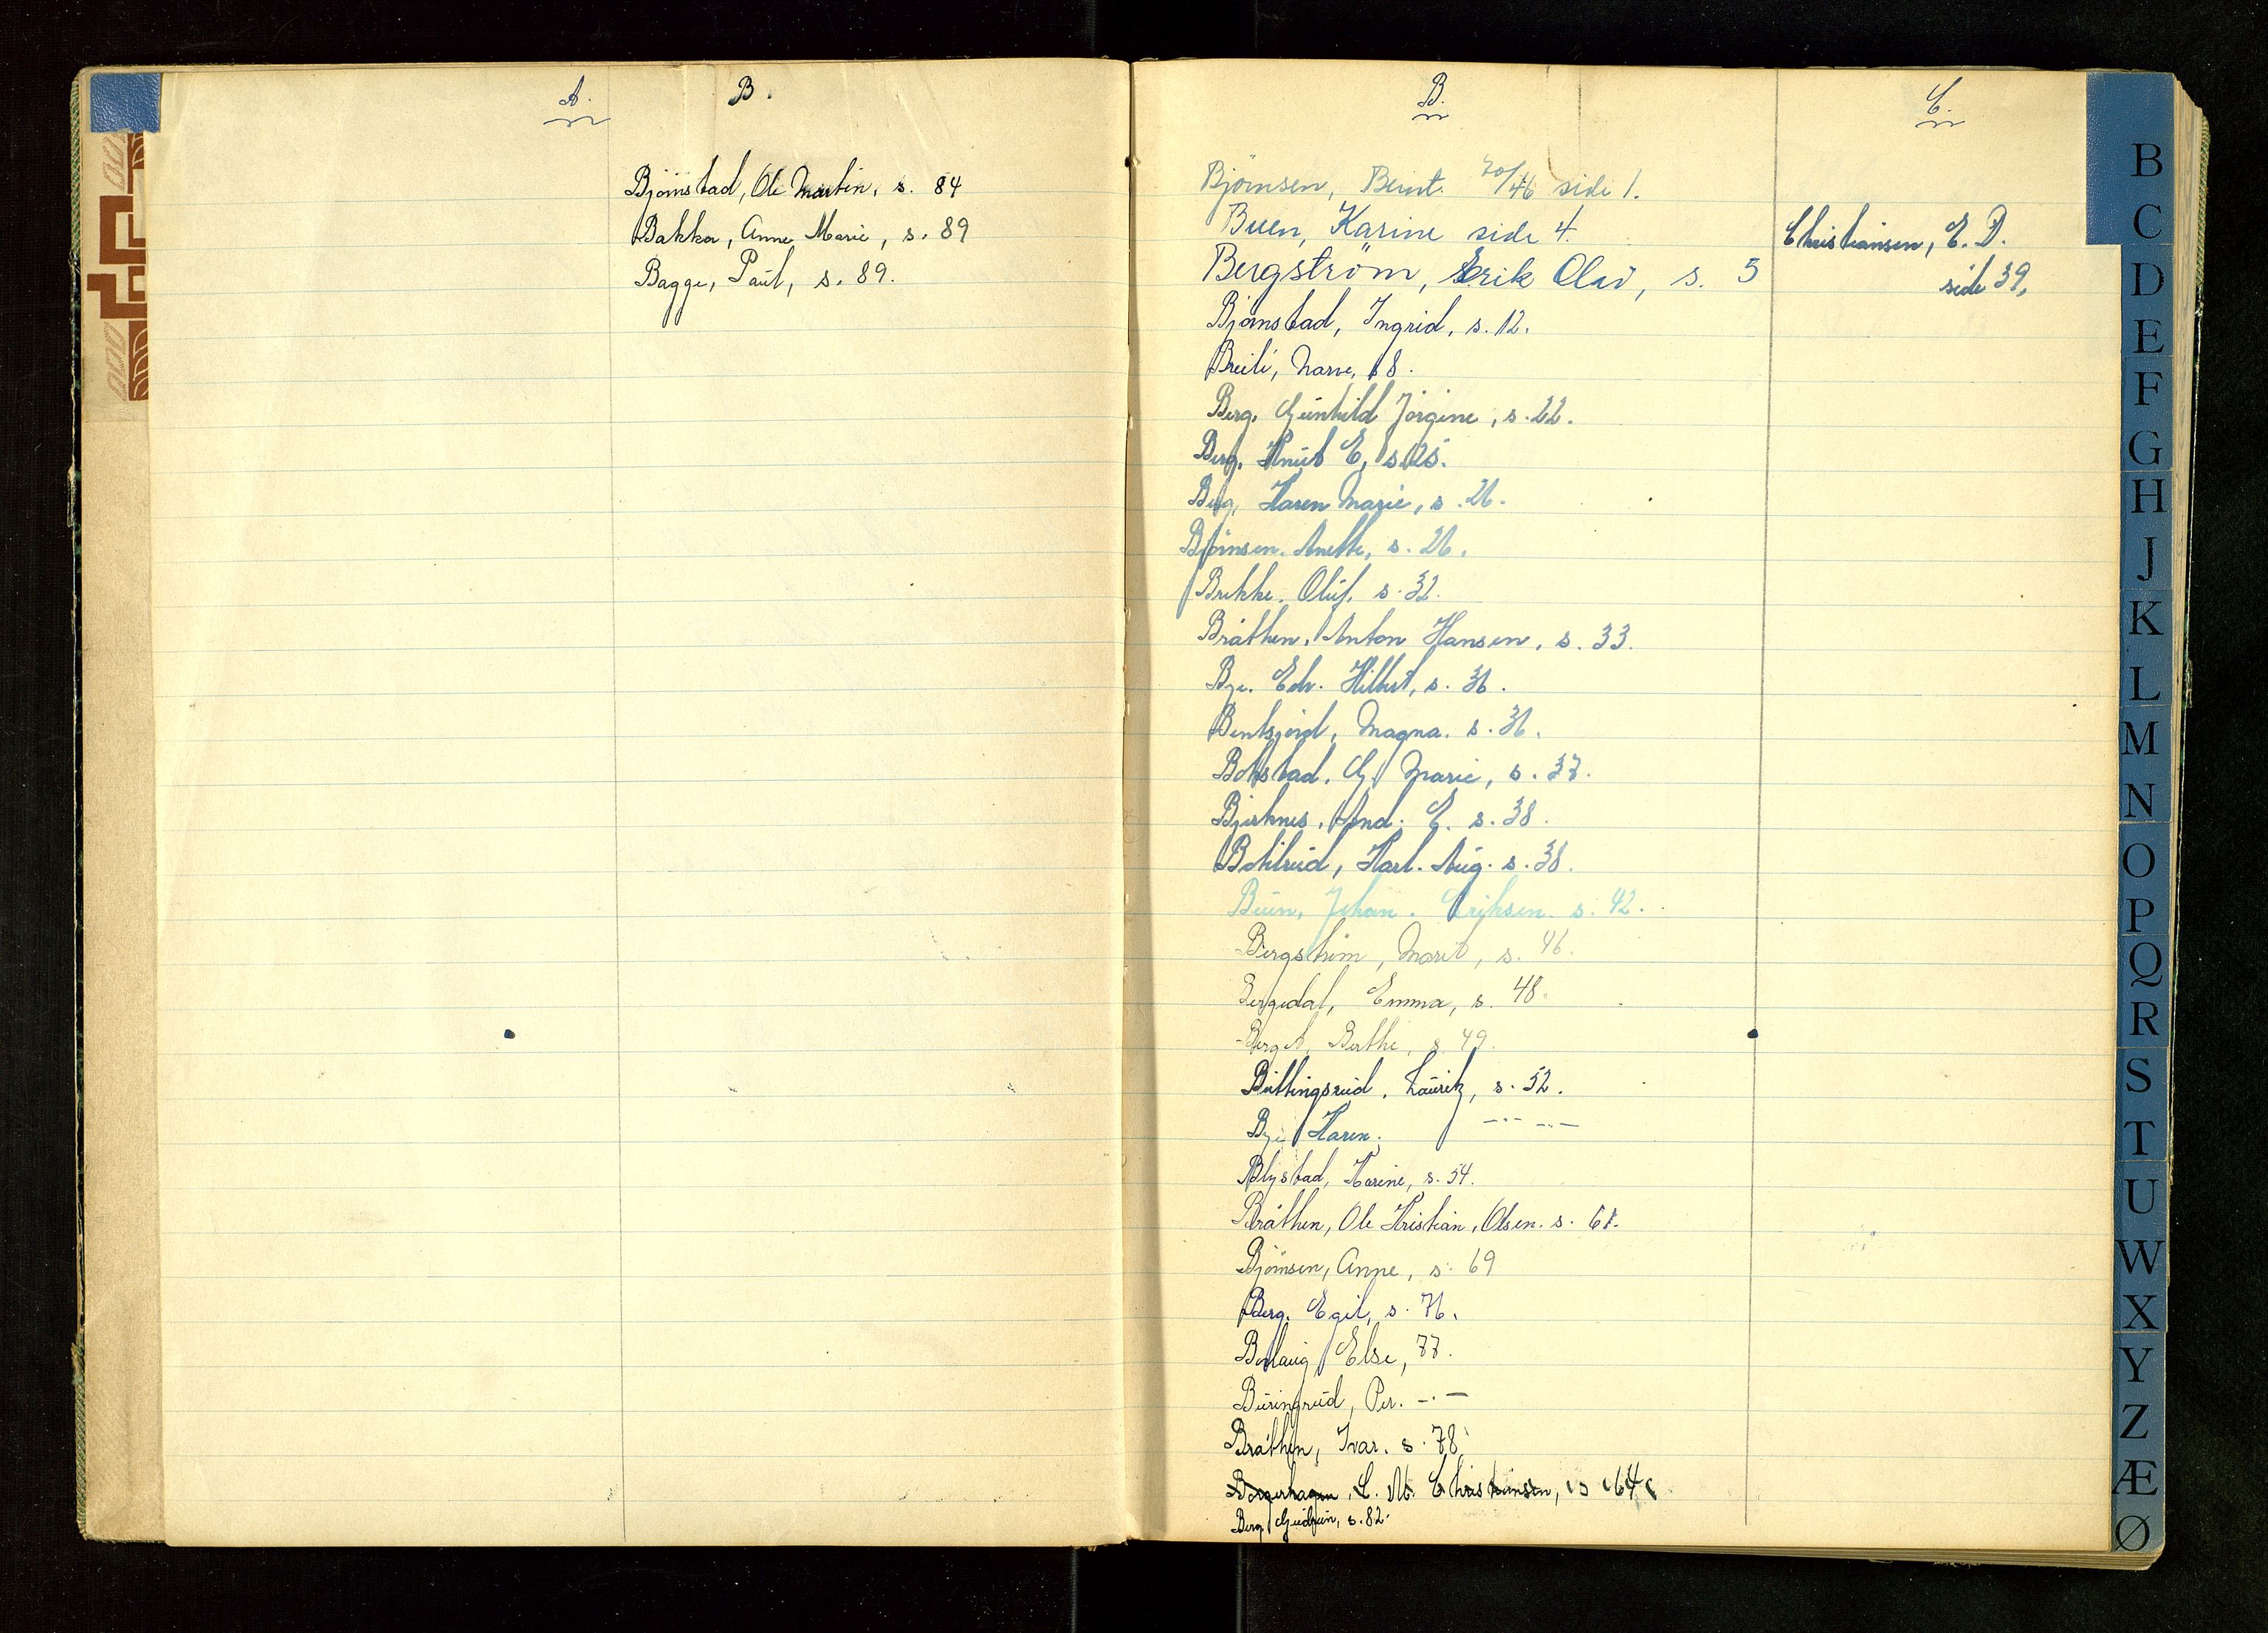 A.
B.
Björnstad, Ole Martin, s. 84
Bakka, Anne Marie, s. 89
Bagge, Paul, s. 89.
B.
Björnsen, Bernt. 70/46 side 1.
Buen, Karine side 4.
Bergström, Erik Olav, s. 5
Björnstad, Ingrid, s. 12.
Breili, Narve, 18.
Berg, Gunhild Jörgine, s. 22.
Berg, Knut E, s. 25.
Berg, Karen Marie, s. 26.
Björnsen. Anette, s. 26.
Brekke. Oluf. s. 32.
Bråthen. Anton Hansen. s. 33.
Bye. Edv. Hilbert, s. 36.
Bentsjord, Magna. s. 36.
Bakstad. G. Marie, s. 37.
Bjerknes. And. E. s. 38.
Bottilrud, Karl. Aug. s. 38.
Buen, Johan. Eriksen. s. 42.
Bergström, Marit, s. 46.
Bergedal, Emma, s. 48.
Berg A, Berthe, s. 49.
Büttingsrud. Lauritz, s. 52.
Bye Karen. -"- -"-
Blystad, Karine, s. 54.
Bråthen, Ole Kristian, Olsen. s. 61.
Björnsen, Anne, s. 69
Berg. Egil, s. 76.
Borlaug Else, 77.
Buringrud, Per. -"-
Bråthen, Ivar. s. 78
Borgerhagen, L. M. Christiansen, s 64
Berg Gudrun, s. 82.
C.
Christiansen, E. D.
side 39,
B
C
D
E
F
G
H
J
K
L
M
N
O
P
Q
R
S
T
U
W
X
Y
Z
Æ
Ø